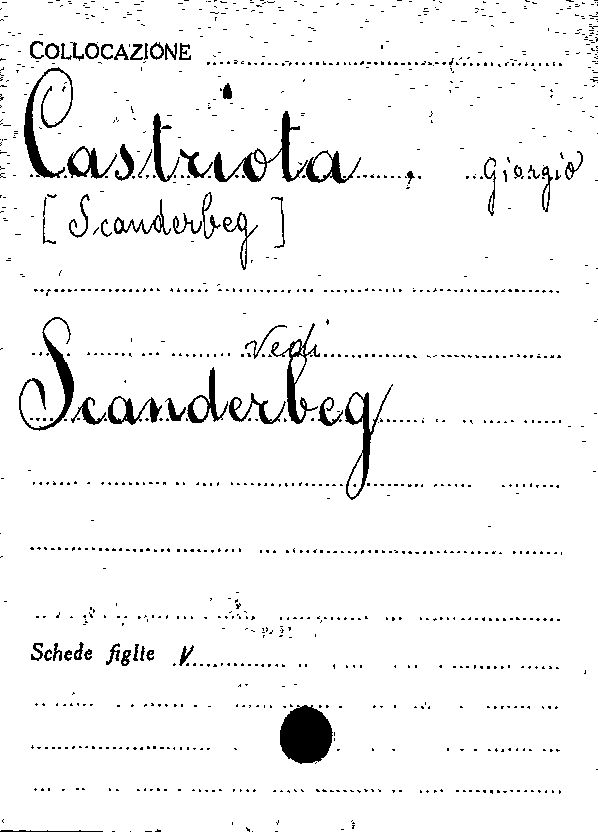 COLLOCAZIONE
Castriota, Giorgio
[Scanderbeg]
Vedi
Scanderbeg
Schede figlie V